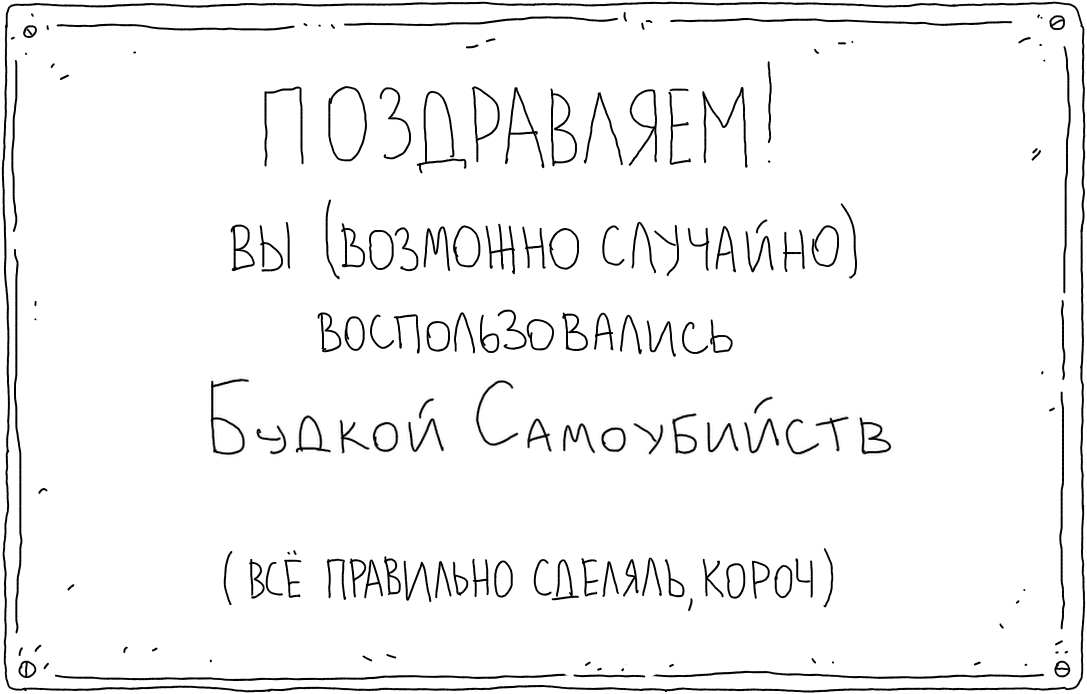 ПОЗДРАВЛЯЕМ!
ВЫ (ВОЗМОЖНО СЛУЧАЙНО)
ВОСПОЛЬЗОВАЛИСЬ
БУДКОЙ САМОУБИЙСТВ
(ВСЁ ПРАВИЛЬНО СДЕЛЯЛЬ, КОРОЧ)